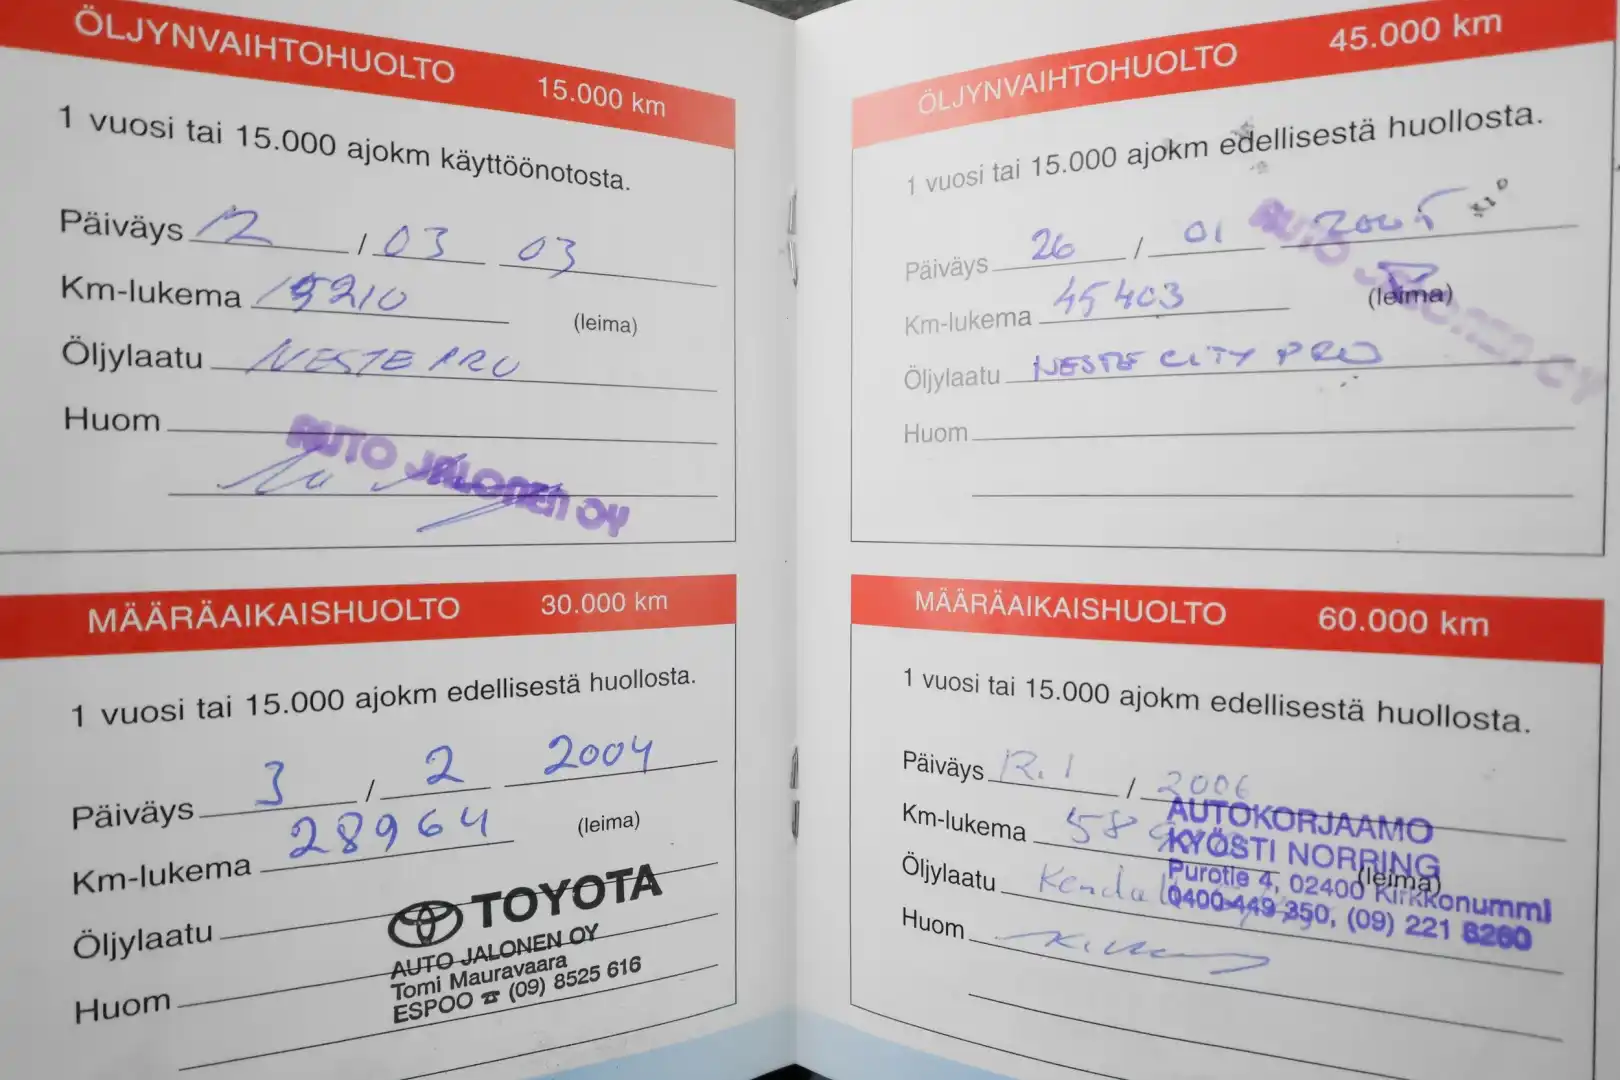 ÖLJYNVAIHTOHUOLTO 15.000 km
1 vuosi tai 15.000 ajokm käyttöönotosta.
Päiväys 12 / 03 03
Km-lukema 15210 (leima)
Öljylaatu NESTE PRO
Huom
AUTO JALONEN OY
MÄÄRÄAIKAISHUOLTO 30.000 km
1 vuosi tai 15.000 ajokm edellisestä huollosta.
Päiväys 3 / 2 2004
Km-lukema 28964 (leima)
Öljylaatu
Huom
TOYOTA
AUTO JALONEN OY
Tomi Mauravaara
ESPOO ☎ (09) 8525 616
ÖLJYNVAIHTOHUOLTO 45.000 km
1 vuosi tai 15.000 ajokm edellisestä huollosta.
Päiväys 26 / 01 2005
Km-lukema 45403 (leima)
Öljylaatu NESTE CITY PRO
Huom
AUTO JALONEN OY
MÄÄRÄAIKAISHUOLTO 60.000 km
1 vuosi tai 15.000 ajokm edellisestä huollosta.
Päiväys / 2006
Km-lukema
Öljylaatu Kendall (leima)
Huom
AUTOKORJAAMO
KYÖSTI NORRING
Purotie 4, 02400 Kirkkonummi
0400-449 350, (09) 221 8260